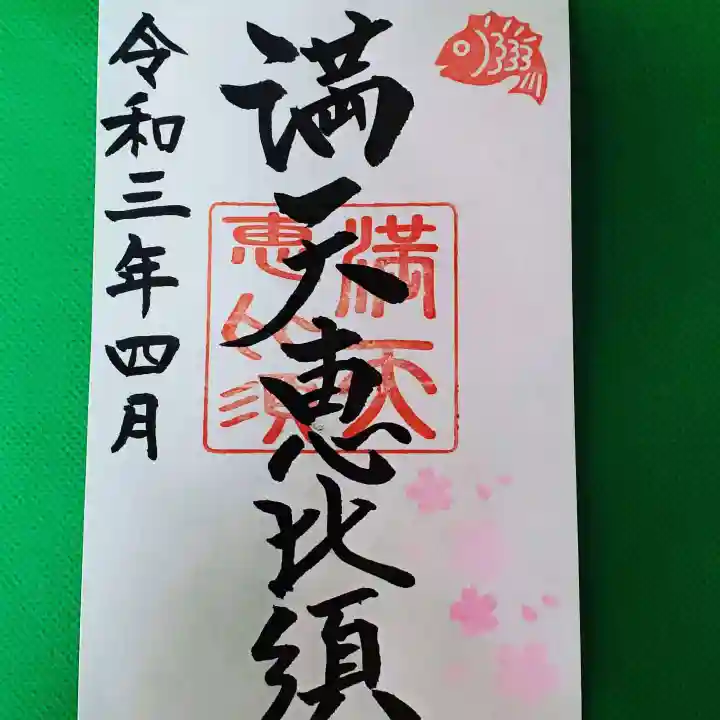 満天恵比須
満天
恵比須
令和三年四月